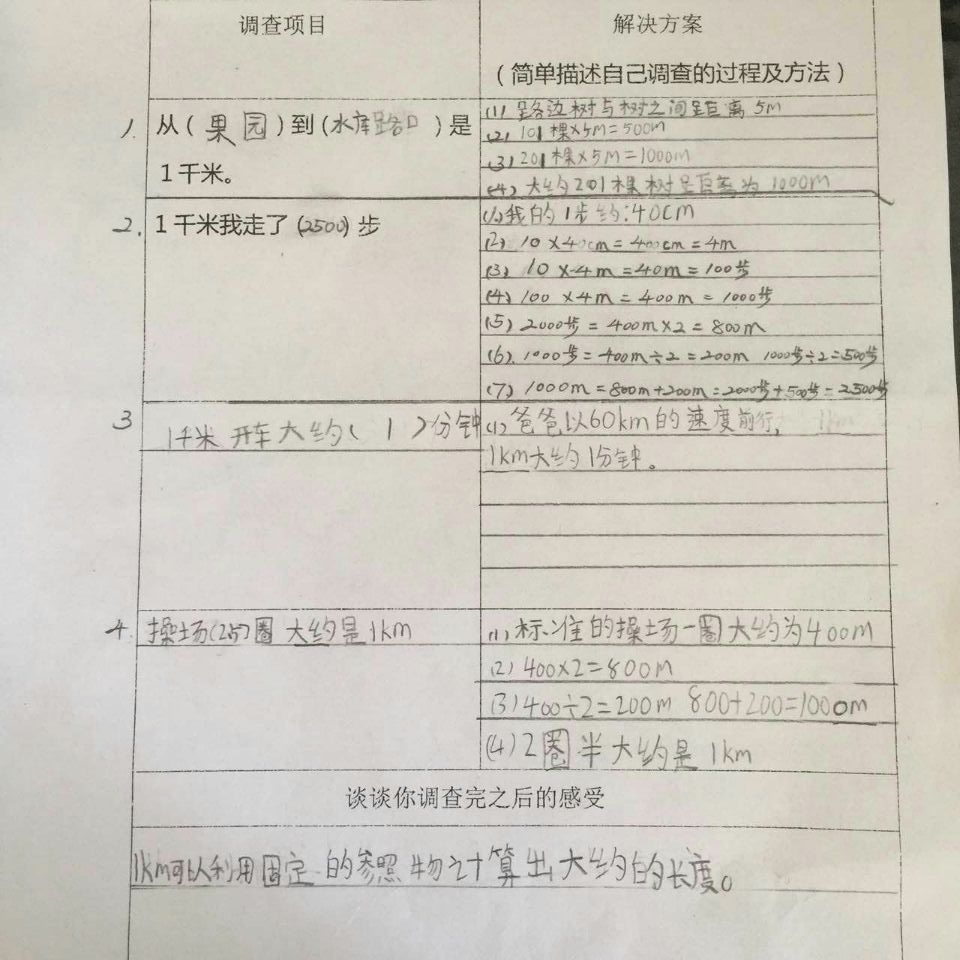 调查项目
解决方案
(简单描述自己调查的过程及方法)
1. 从(果园)到(水库路口)是
1千米。
(1) 路边树与树之间距离5m
(2) 101棵×5m=500m
(3) 201棵×5m=1000m
(4) 大约201棵树距离为1000m
2. 1千米我走了(2500)步
(1)我的1步约:40cm
(2) 10×40cm=400cm=4m
(3) 10×4m=40m=100步
(4) 100×4m=400m=1000步
(5) 2000步=400m×2=800m
(6). 1000步=400m÷2=200m 1000步÷2=500步
(7) 1000m=800m+200m=2000步+500步=2500步
3 1千米开车大约(1)分钟
(1)爸爸以60km的速度前行, 1km
1km大约1分钟。
4. 操场(2.5)圈大约是1km
(1)标准的操场一圈大约为400m
(2) 400×2=800m
(3) 400÷2=200m 800+200=1000m
(4) 2圈半大约是1km
谈谈你调查完之后的感受
1km可以利用固定的参照物计算出大约的长度。